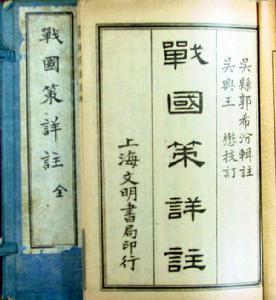 戰國策詳註 全
吳縣郭希汾輯註
吳興王懋校訂
戰國策詳註
上海文明書局印行